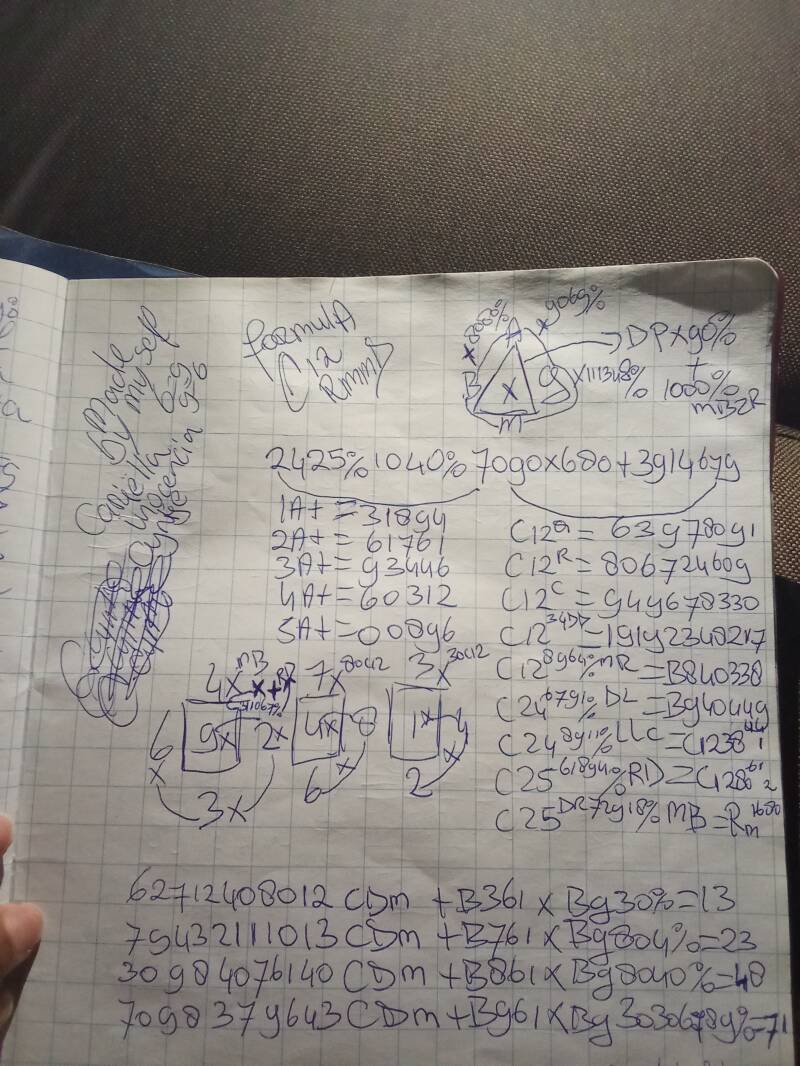 Made
by my self
6=g
g=6
formulA
C12
Rmm
x8000%
A
x9069%
B
x
g
m
x111348%
DPxg0%
+
1000%
mB2R
2425%1040%70g0x680+3g1467g
1At=318g4
2At=61761
3At=g3446
4At=60312
5At=008g6
C12 = 63g780g1
C12^R=80672460g
C12^C=g4g678330
C12^34DR=1g1g2348217
C12^8g64%mR=B840338
C24^67g1%DL=Bg4044g
C24^8g11%LLC=C1238^44 1
C25^618g4%RD=C1280^61 2
C25^DR72g18%MB=Rm^1680
4x^MB x+RX 7x^8042 3x^3042
6x gx 2x 4x 8 1x 4x
3x 6x 2
62712408012CDm +B361xBg30%=13
7g432111013CDm+B761xBg804%=23
30g84076140CDm+B861xBg8040%=48
70g837g643CDm+Bg61xBg3030678g%=71